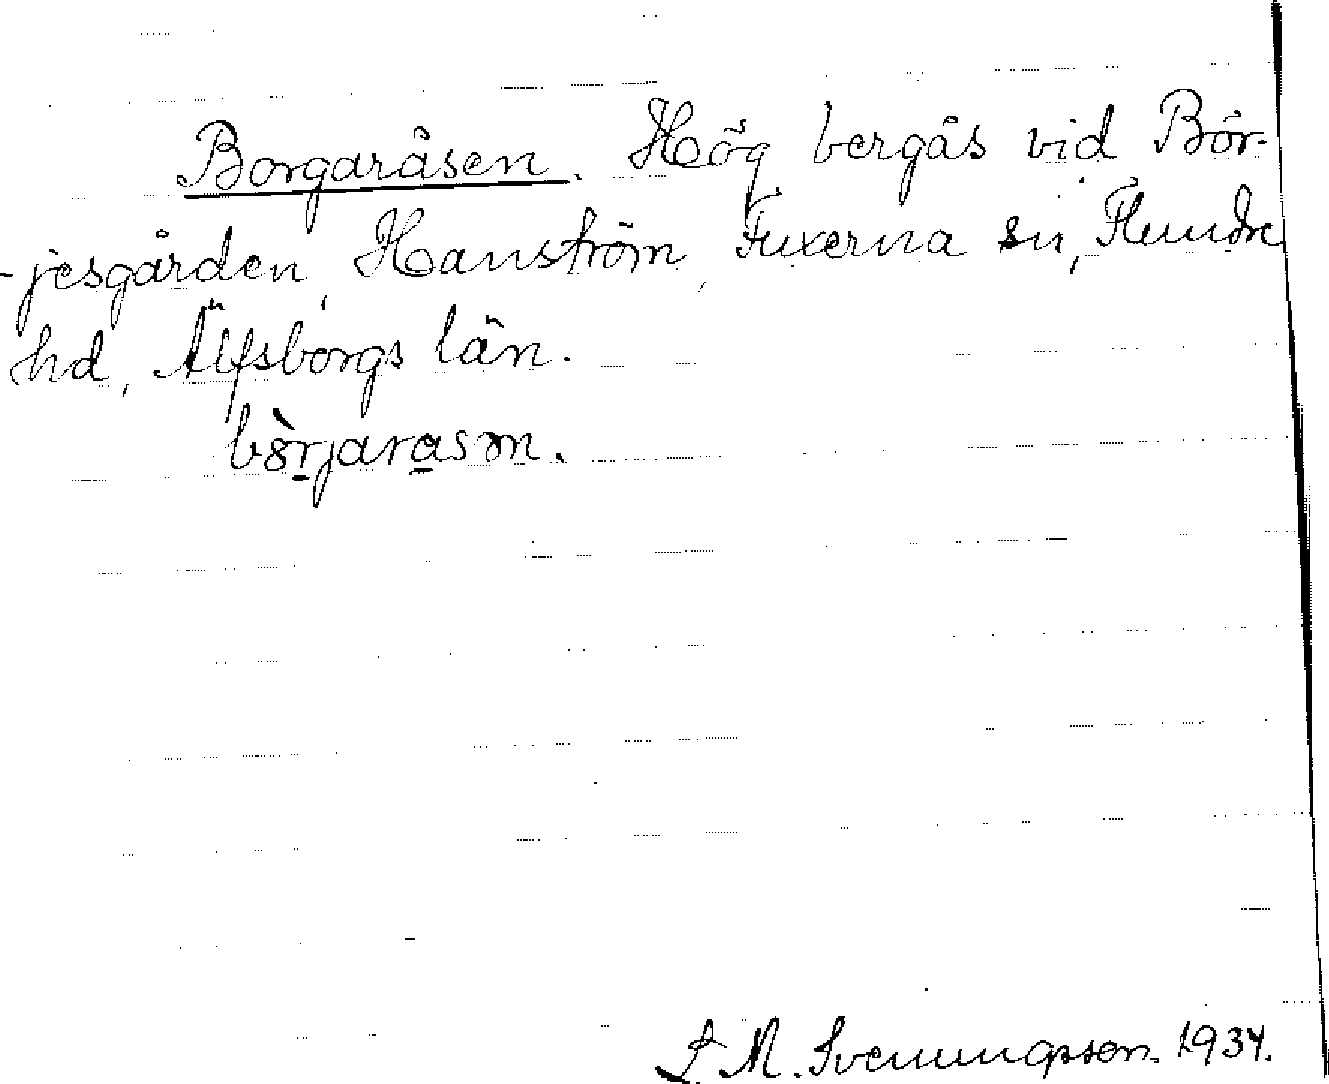 Borgaråsen. Hög bergås vid Bör-
-jesgården, Hanström, Fuxerna sn, Flundre
hd, Älfsborgs län.
bòrjarasən.
L. M. Svenungsson. 1934.